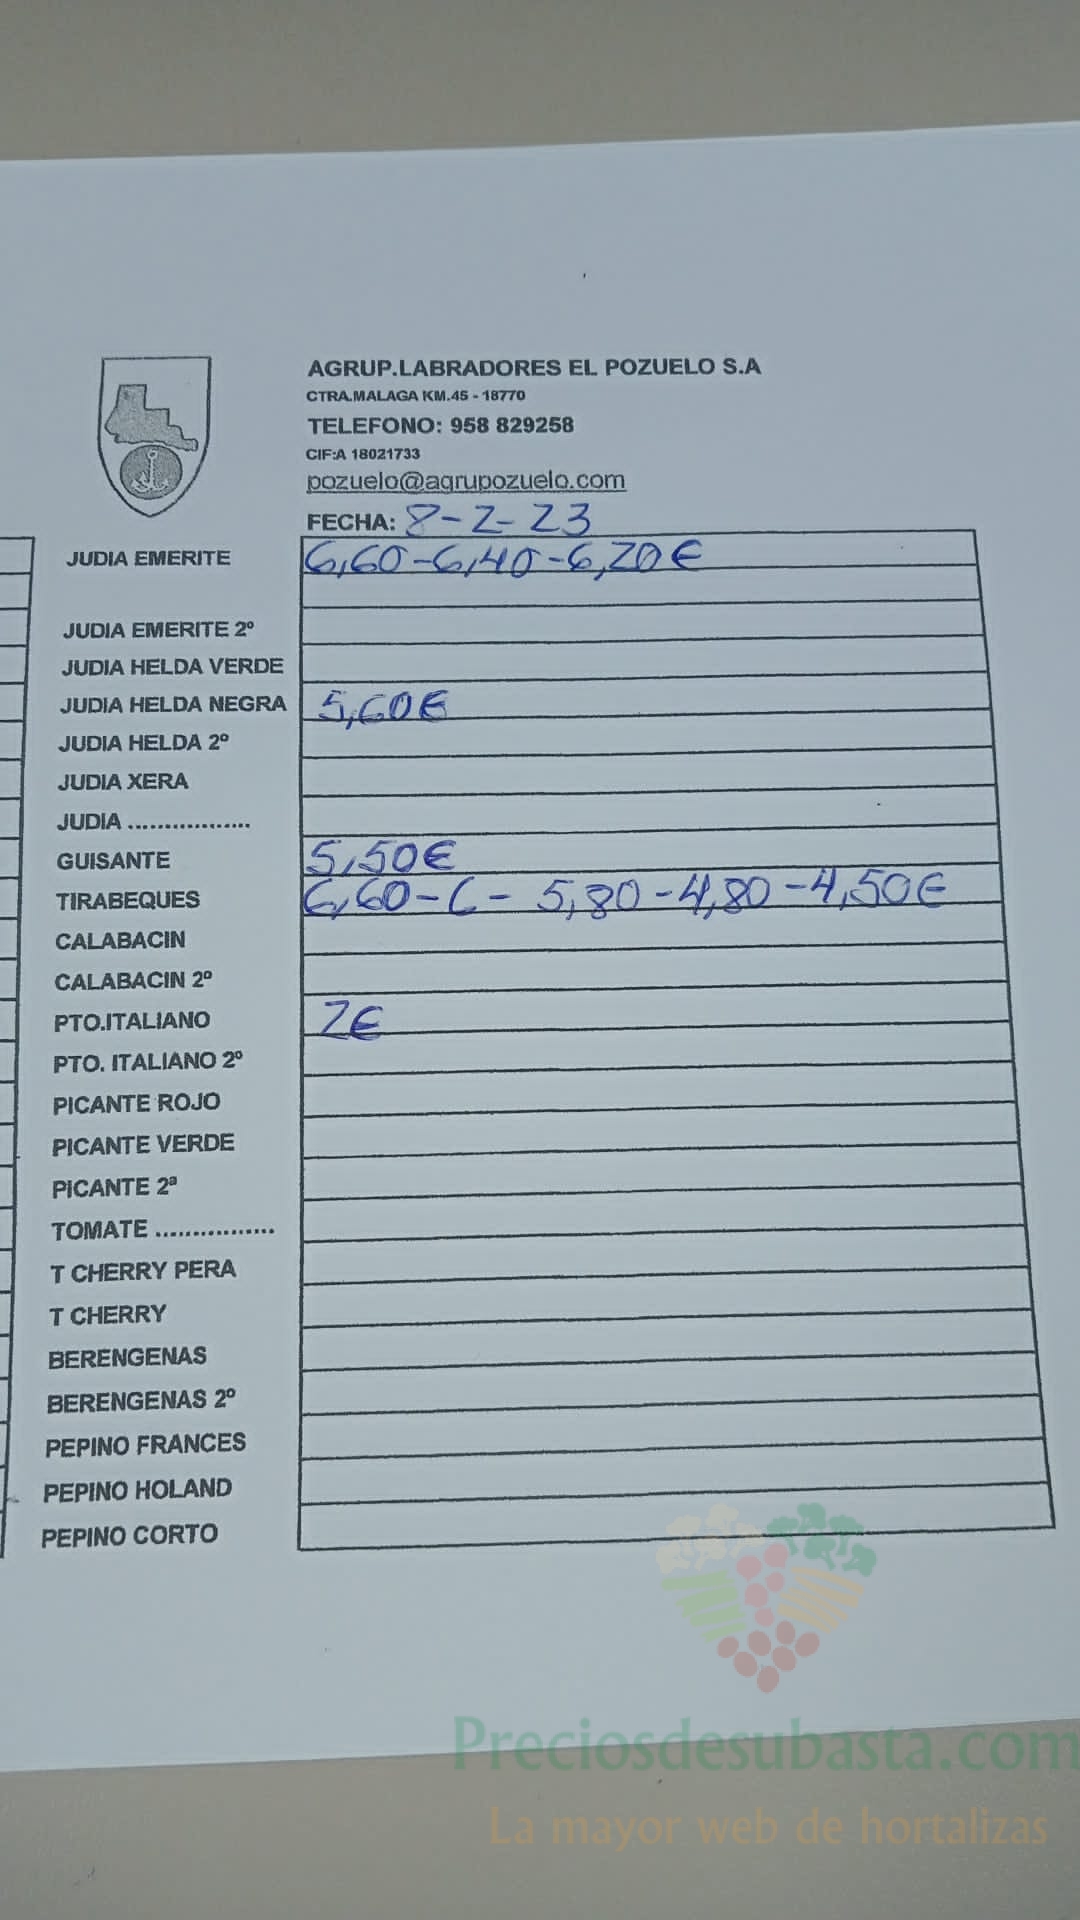 AGRUP.LABRADORES EL POZUELO S.A
CTRA.MALAGA KM.45 - 18770
TELEFONO: 958 829258
CIF:A 18021733
pozuelo@agrupozuelo.com
FECHA: 8-2-23
JUDIA EMERITE 6,60-6,40-6,20€
JUDIA EMERITE 2º
JUDIA HELDA VERDE
JUDIA HELDA NEGRA 5,60€
JUDIA HELDA 2º
JUDIA XERA
JUDIA .................
GUISANTE 5,50€
TIRABEQUES 6,60-6- 5,80-4,80-4,50€
CALABACIN
CALABACIN 2º
PTO.ITALIANO 2€
PTO. ITALIANO 2º
PICANTE ROJO
PICANTE VERDE
PICANTE 2ª
TOMATE ................
T CHERRY PERA
T CHERRY
BERENGENAS
BERENGENAS 2º
PEPINO FRANCES
PEPINO HOLAND
PEPINO CORTO
Preciosdesubasta.com
La mayor web de hortalizas